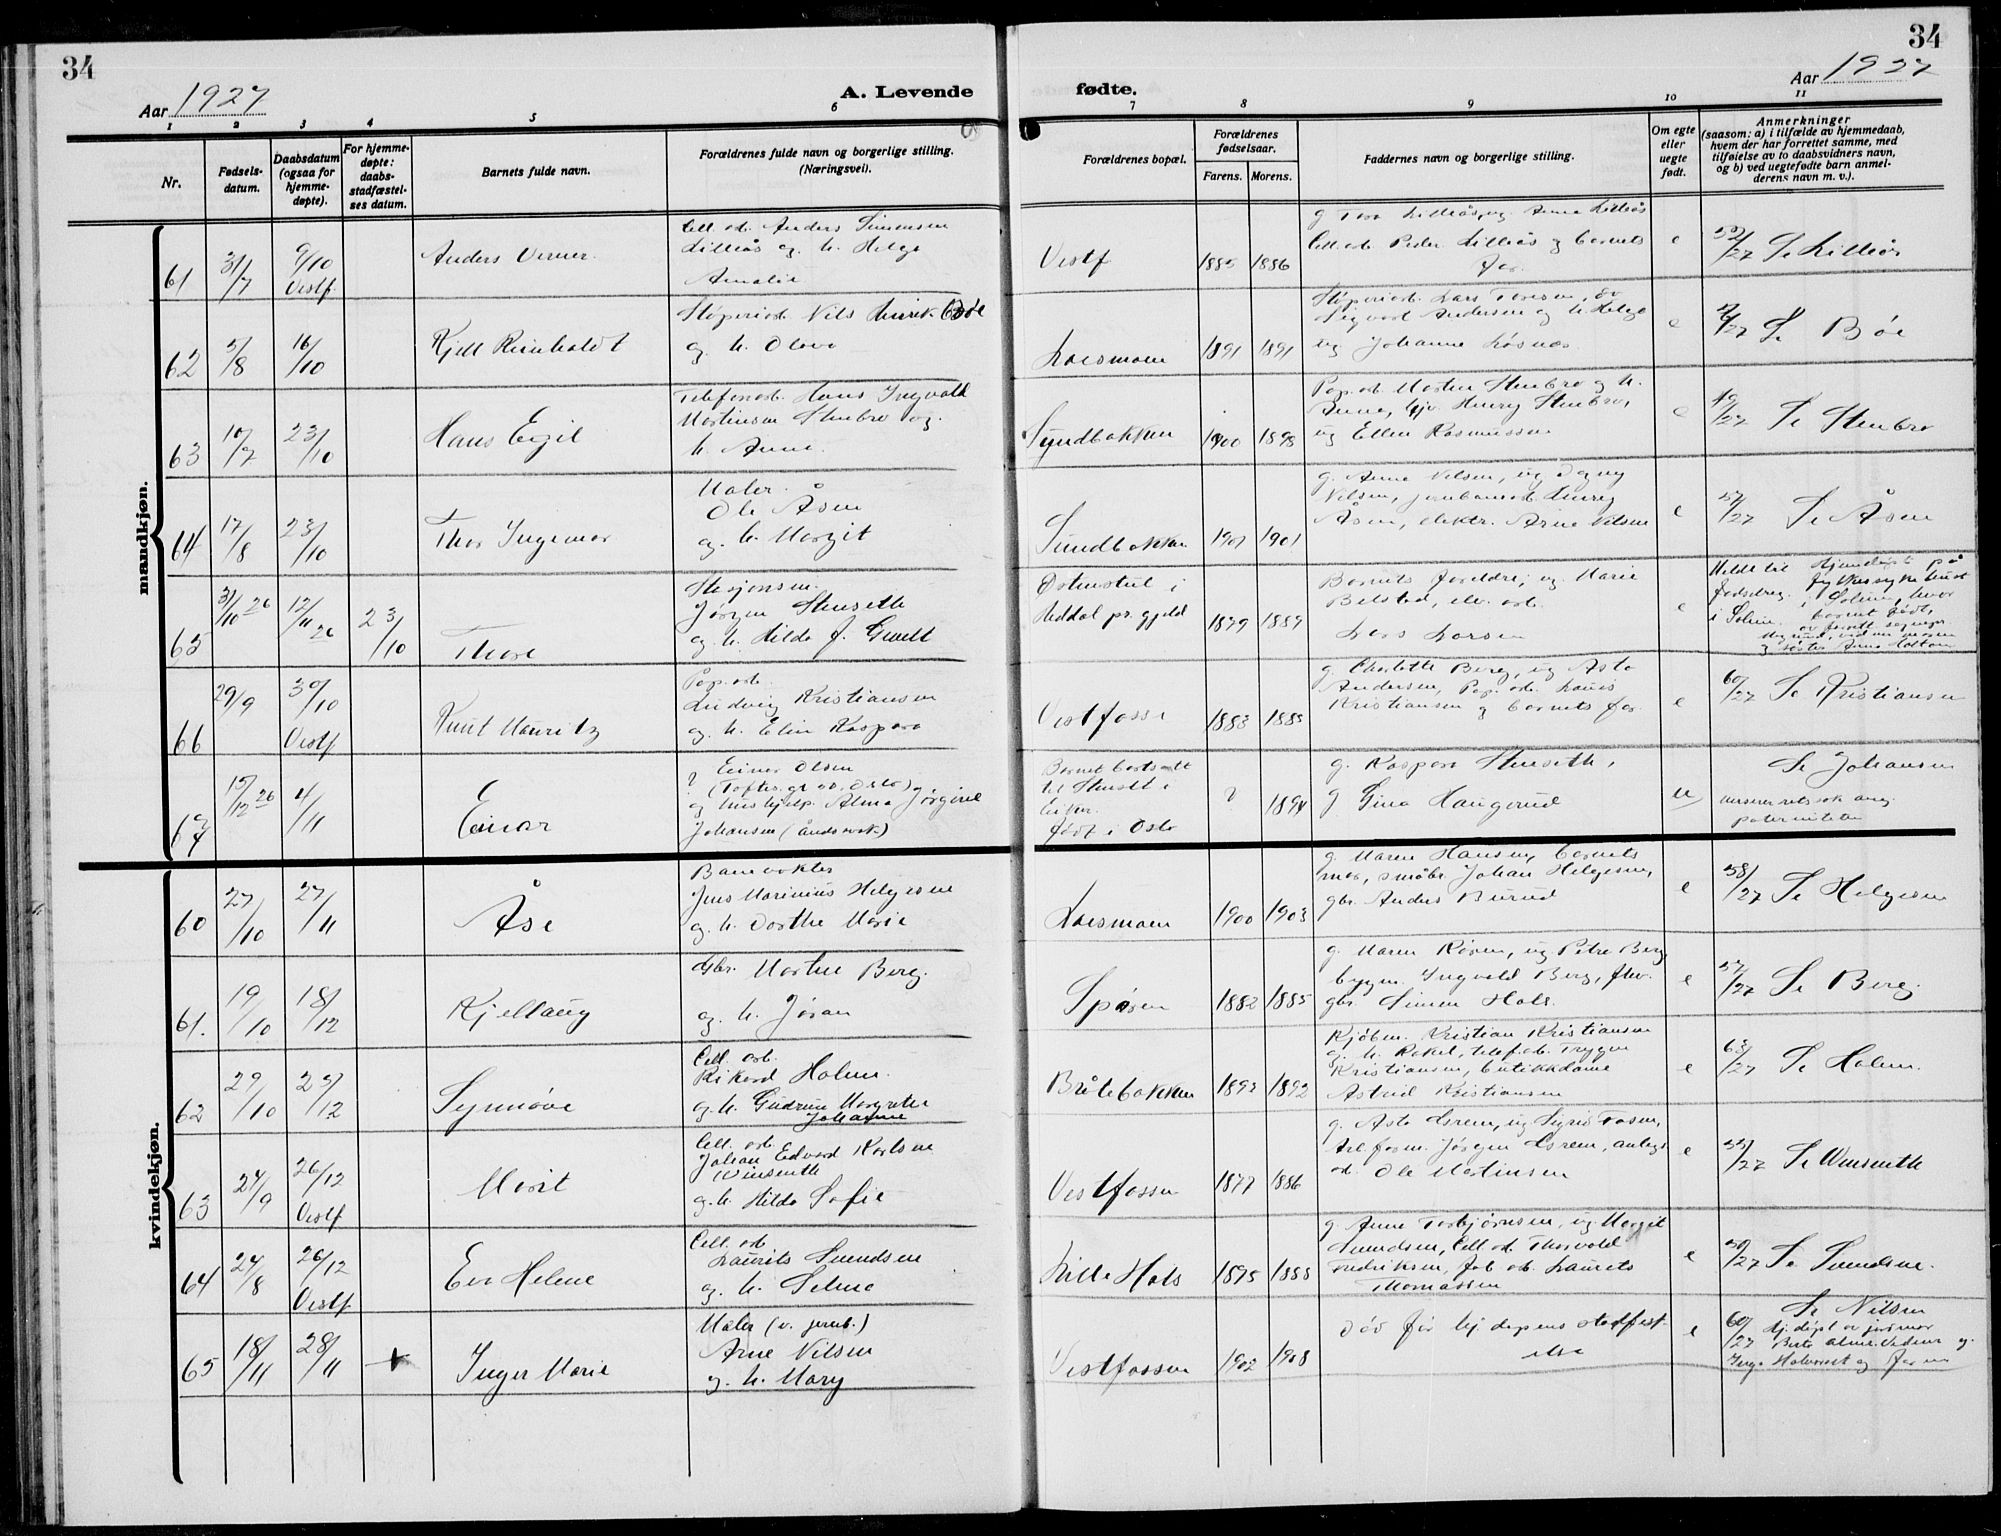 34
34
Aar 1927
A. Levende
fødte.
Aar 1927
1 2 3 4 5 6 7 8 9 10 11
Nr.
Fødsels-
datum.
Daabsdatum
(ogsaa for
hjemme-
døpte).
For hjemme-
døpte:
daabs-
stadfæstel-
ses datum.
Barnets fulde navn.
Forældrenes fulde navn og borgerlige stilling.
(Næringsvei).
Forældrenes bopæl.
Forældrenes
fødselsaar.
Farens. Morens.
Faddernes navn og borgerlige stilling.
Om egte
eller
uegte
født.
Anmerkninger
(saasom: a) i tilfælde av hjemmedaab,
hvem der har forrettet samme, med
tilføielse av to daabsvidners navn,
og b) ved uegtefødte barn anmel-
derens navn m. v.).
mandkjøn.
61 31/7 9/10 Vestf. Anders Verner
Cell. arb. Anders Simensen
Lilleås og h. Helga
Amalie
Vestf. 1885 1886
g. Thea Lilleås, ug. Anna Lilleås
Cell. arb. Peder Lilleås og barnets
far.
e 52/27 Se Lilleås
62 5/8 16/10 Kjell Reinholdt
Støperiarb. Nils Henrik Bøe
og h. Olava
Loesmoen 1891 1891
Støperiarb. Lars Toresen, do
Sigvart Andersen og h. Helga
ug Johanne Løsnæs
e Se Bøe
63 10/7 23/10 Hans Egil
Telefonarb. Hans Ingvald
Martinsen Stenbro og
h. Anna.
Sundbakken 1900 1898
Pap. arb. Morten Stenbro og h.
Anna, Henry Stenbro,
ug Ellen Rasmussen
e 49/27 Se Stenbro
64 17/8 23/10 Thor Ingemar
Maler
Ole Åsen
og h. Margit
Sundbakken 1901 1901
g. Anna Nilsen, ug Dagny
Nilsen, jernbanearb. Henry
Åsen, elektr. Arne Nilsen
e 57/27 Se Åsen
65 31/10 26 12/11 26 23/10 Thore
Stasjonsm.
Jørgen Stenseth
og h. Hilda J.
Østenstul i
Heddal pr. gjeld 1879 1889
Barnets foreldre, ug. Marie
Belstad, elv. arb.
Lars Larsen
e Meldt til
fødselsreg.
i Solum.
Hjemdøpt på
Fylkessykehuset
i Solum, hvor
barnet født,
66 29/9 30/10 Vestf Knut Mauritz
Pap. arb.
Ludvig Kristiansen
og h. Elin Kaspara
Vestfossen 1883 1885
g. Charlotte Berg, ug Asta
Andersen, Pap. arb. Louis
Kristiansen og barnets far.
e 60/27 Se Kristiansen
67 15/12 26 4/11 Einar
? Einar Olsen
(Toftes gt. Oslo)
og hushjelp. Alma Jørgine
Johansen (åndssvak)
Barnet bortsatt
til Stensett i
Eiker.
født i Oslo
? 1894
g. Kaspara Stenseth,
g Gina Haugerud
u Se Johansen
paterniteten
kvindekjøn.
60 27/10 27/11 Åse
Banevokter
Jens Marinius Helgesen
og h. Dorthe Marie
Loesmoen 1900 1903
g. Maren Hansen, barnets
mor, småbr. Johan Helgesen,
gbr. Anders Burud
e 58/27 Se Helgesen
61. 19/10 18/12 Kjellaug
Gbr. Morten Berg.
og h. Jøran
Spåren 1882 1885
g. Maren Røren, ug Petra Berg
bygm. Ingvald Berg, fhv.
gbr. Simen Hals.
e 57/27 Se Berg.
62 29/10 25/12 Synnøve
Cell. arb.
Rikard Holm.
og h. Gudrun Margrethe
Johanne
Bråtebakken 1892 1892
Kjøbm. Kristian Kristiansen
og h. Rakel, telef. arb. Trygve
Kristiansen, butikkdame
Astrid Kristiansen
e 63/27 Se Holm.
63 24/9 26/12 Vestf Marit
Cell. arb.
Johan Edvard Karlsen
Winsenth
og h. Hilda Sofie
Vestfossen 1877 1886
g. Asta Green, ug Sigrid Fossen,
Arb. form. Jørgen Green, anlegs
arb. Ole Martinsen
e 55/27 Se Winsenth
64 24/8 26/12 Vestf Eva Helene
Cell. arb.
Laurits Svendsen
og h. Selma
Lille Hals 1895 1888
g. Anna Torbjørnsen, ug. Margit
Svendsen, Cell. arb. Thorvald
Fredriksen, fab. arb. Laurits
Thomassen
e 50/27 Se Svendsen.
65 18/11 28/11 + Inger Marie
Maler (v. jernb.)
Arne Nilsen
og h. Mary
Vestfossen 1902 1908
død før hj. dåpens stadfest-
else
e 60/27 Se Nilsen
Hj. døpt av jordmor
og
faren